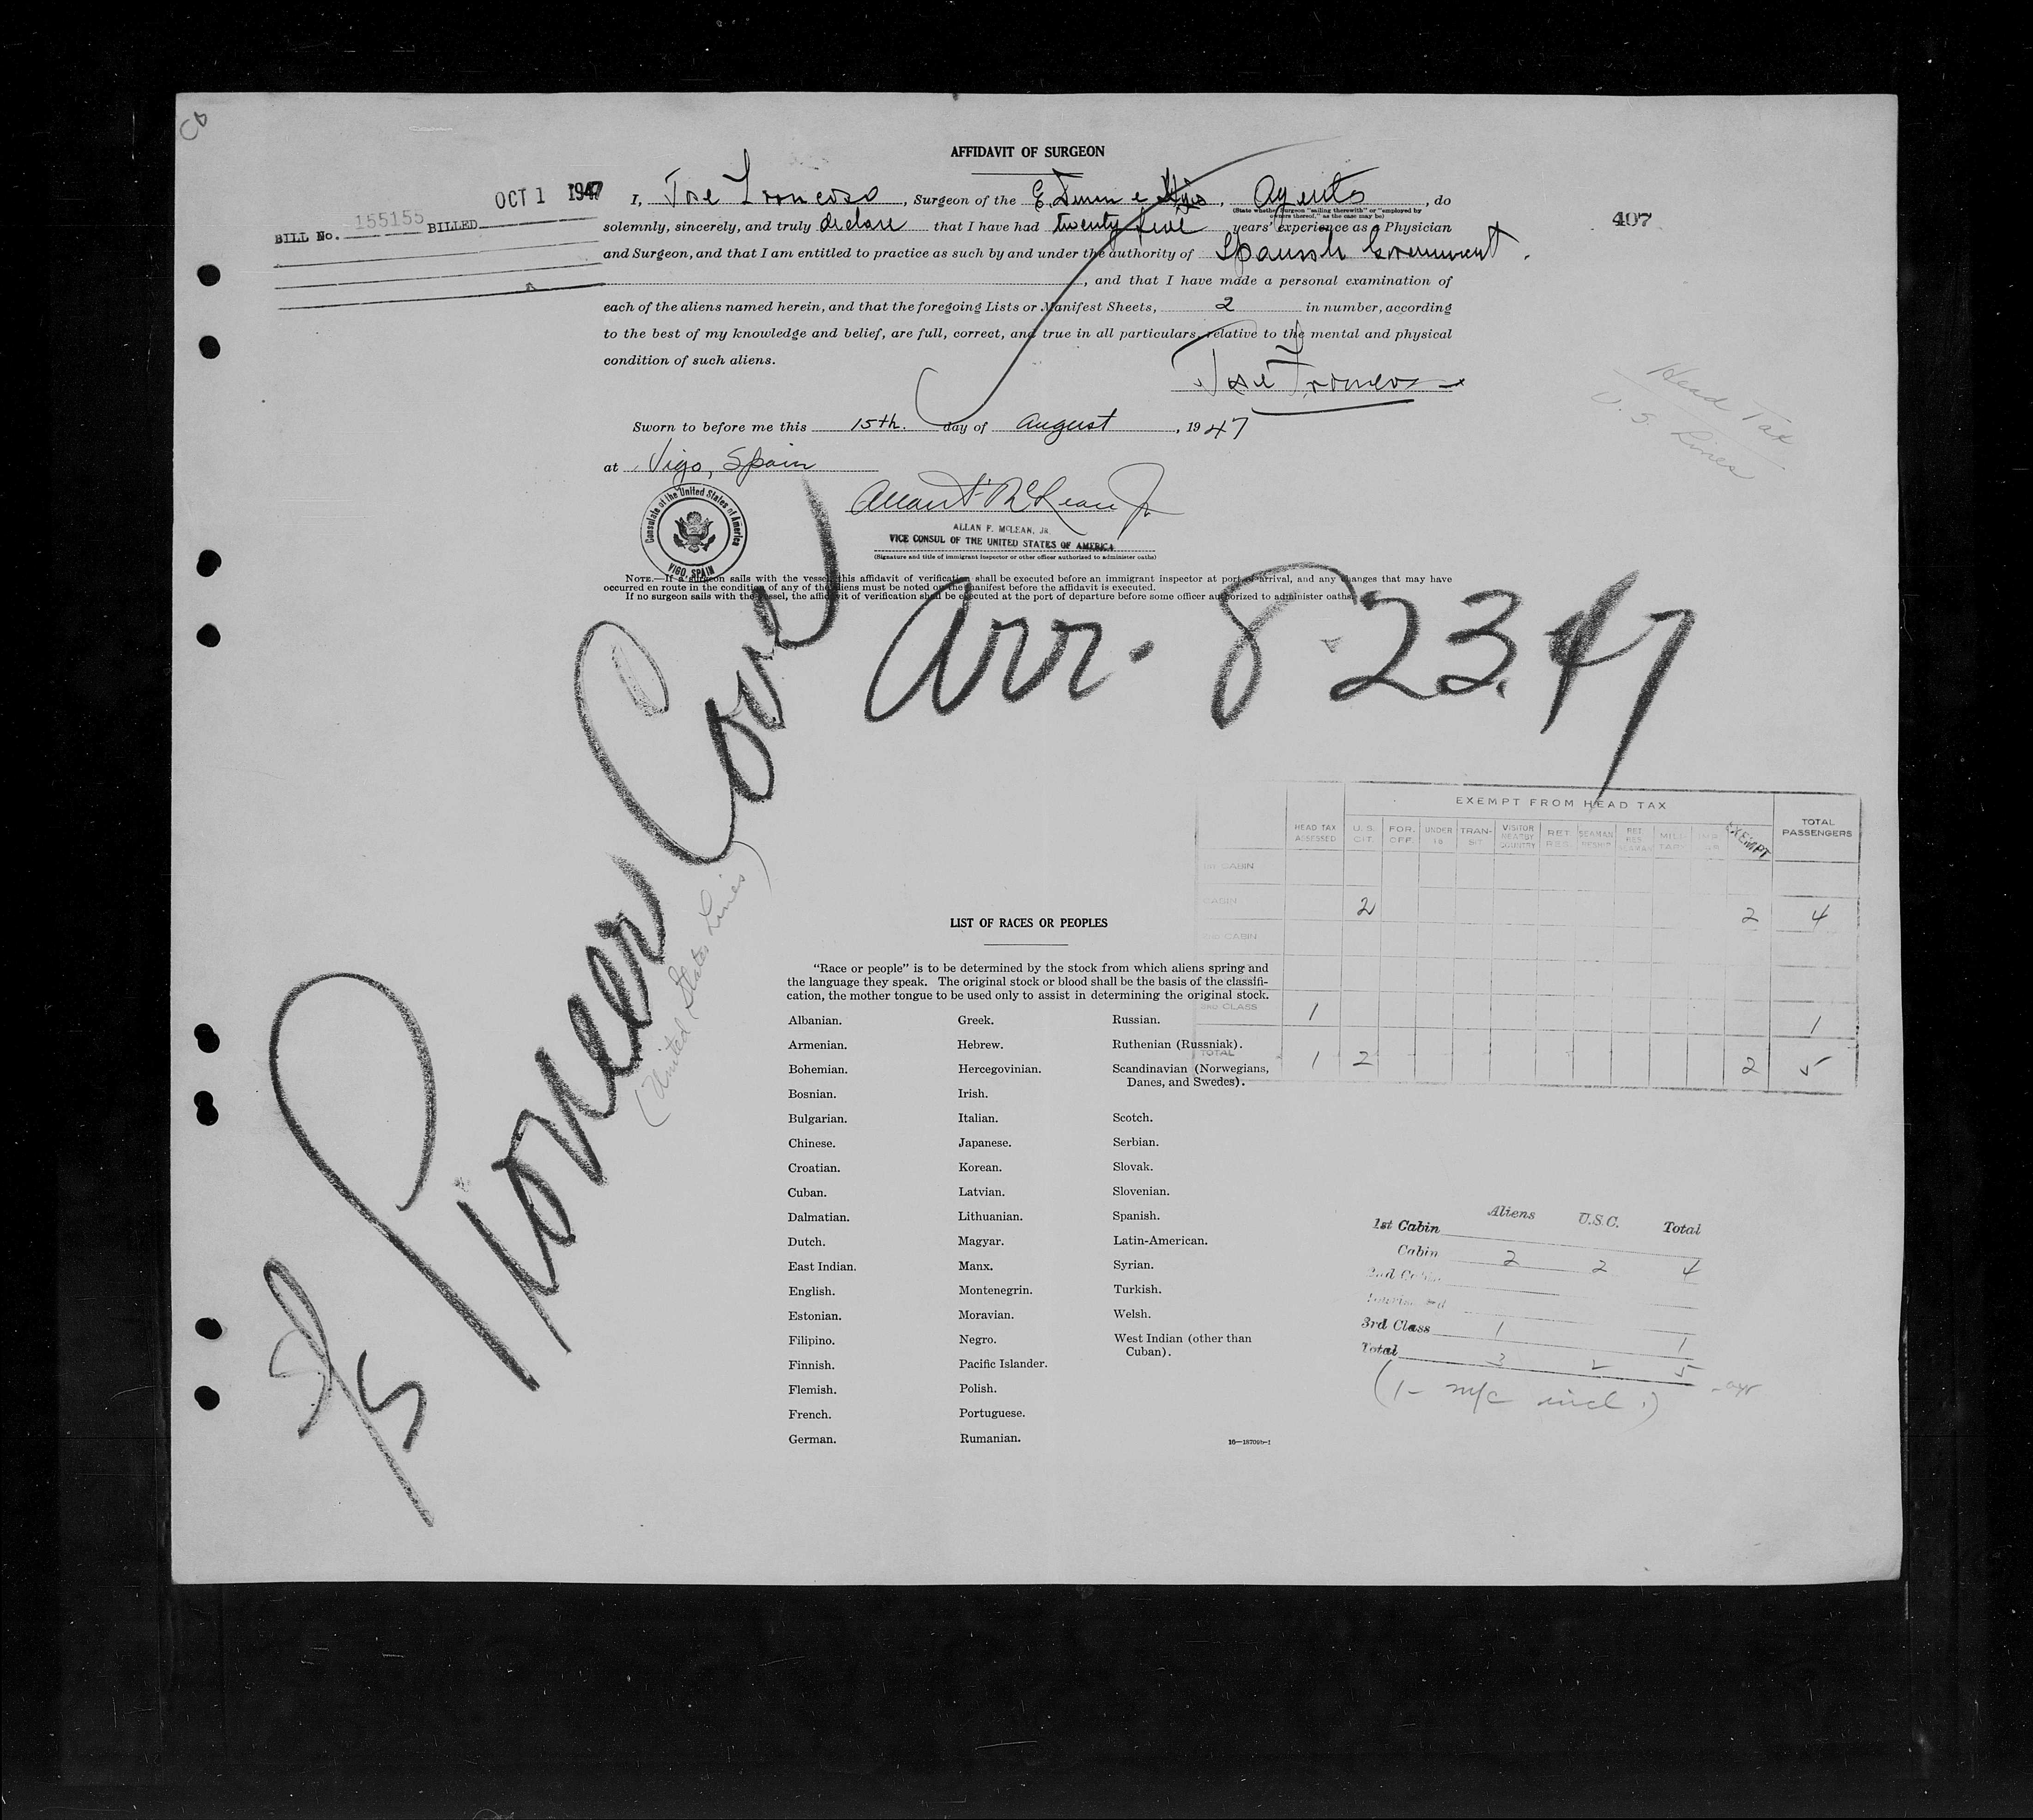 AFFIDAVIT OF SURGEON
OCT 1 1947
BILL No. 155155 BILLED
407
I, Jose Troncoso, Surgeon of the E. Duran e Hijos, Agents, do
(State whether Surgeon "sailing therewith" or "employed by
owners thereof," as the case may be)
solemnly, sincerely, and truly declare that I have had twenty five years' experience as a Physician
and Surgeon, and that I am entitled to practice as such by and under the authority of Spanish Government.
, and that I have made a personal examination of
each of the aliens named herein, and that the foregoing Lists or Manifest Sheets, 2 in number, according
to the best of my knowledge and belief, are full, correct, and true in all particulars, relative to the mental and physical
condition of such aliens.
Jose Troncoso
Head Tax
U. S. Lines
Sworn to before me this 15th. day of August, 1947
at Vigo, Spain
Consulate of the United States of America
VIGO, SPAIN
Allan F. McLean Jr
ALLAN F. MCLEAN, JR.
VICE CONSUL OF THE UNITED STATES OF AMERICA
(Signature and title of immigrant inspector or other officer authorized to administer oaths)
NOTE.—If a surgeon sails with the vessel, this affidavit of verification shall be executed before an immigrant inspector at port of arrival, and any changes that may have
occurred en route in the condition of any of the aliens must be noted on the manifest before the affidavit is executed.
If no surgeon sails with the vessel, the affidavit of verification shall be executed at the port of departure before some officer authorized to administer oaths.
Arr. 8-23.47
S/S Pioneer Cove
(United States Lines)
EXEMPT FROM HEAD TAX
HEAD TAX ASSESSED U. S. CIT. FOR. OFF. UNDER 16 TRANSIT VISITOR NEARBY COUNTRY RET. RES. SEAMAN RESHIP RET RES SEAMAN MILITARY EXEMPT TOTAL PASSENGERS
1ST CABIN
CABIN 2 2 4
2ND CABIN
3RD CLASS 1 1
TOTAL 1 2 2 5
LIST OF RACES OR PEOPLES
"Race or people" is to be determined by the stock from which aliens spring and
the language they speak. The original stock or blood shall be the basis of the classifi-
cation, the mother tongue to be used only to assist in determining the original stock.
Albanian. Greek. Russian.
Armenian. Hebrew. Ruthenian (Russniak).
Bohemian. Hercegovinian. Scandinavian (Norwegians,
Danes, and Swedes).
Bosnian. Irish.
Bulgarian. Italian. Scotch.
Chinese. Japanese. Serbian.
Croatian. Korean. Slovak.
Cuban. Latvian. Slovenian.
Dalmatian. Lithuanian. Spanish.
Dutch. Magyar. Latin-American.
East Indian. Manx. Syrian.
English. Montenegrin. Turkish.
Estonian. Moravian. Welsh.
Filipino. Negro. West Indian (other than
Cuban).
Finnish. Pacific Islander.
Flemish. Polish.
French. Portuguese.
German. Rumanian.
Aliens U.S.C. Total
1st Cabin
Cabin 2 2 4
2nd Cabin
Tourist 3d
3rd Class 1 1
Total 3 2 5
(1- m/c incl.)